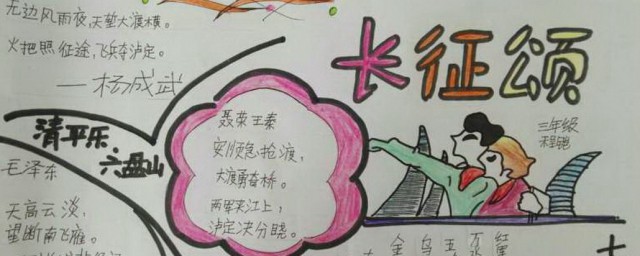 无边风雨夜,天堑大渡横。
火把照征途,飞兵夺泸定。
——杨成武
长征颂
清平乐·
六盘山
毛泽东
天高云淡,
望断南飞雁。
聂荣王秦
安顺急抢渡,
大渡勇夺桥。
两军夹江上,
泸定决分晓。
三年级